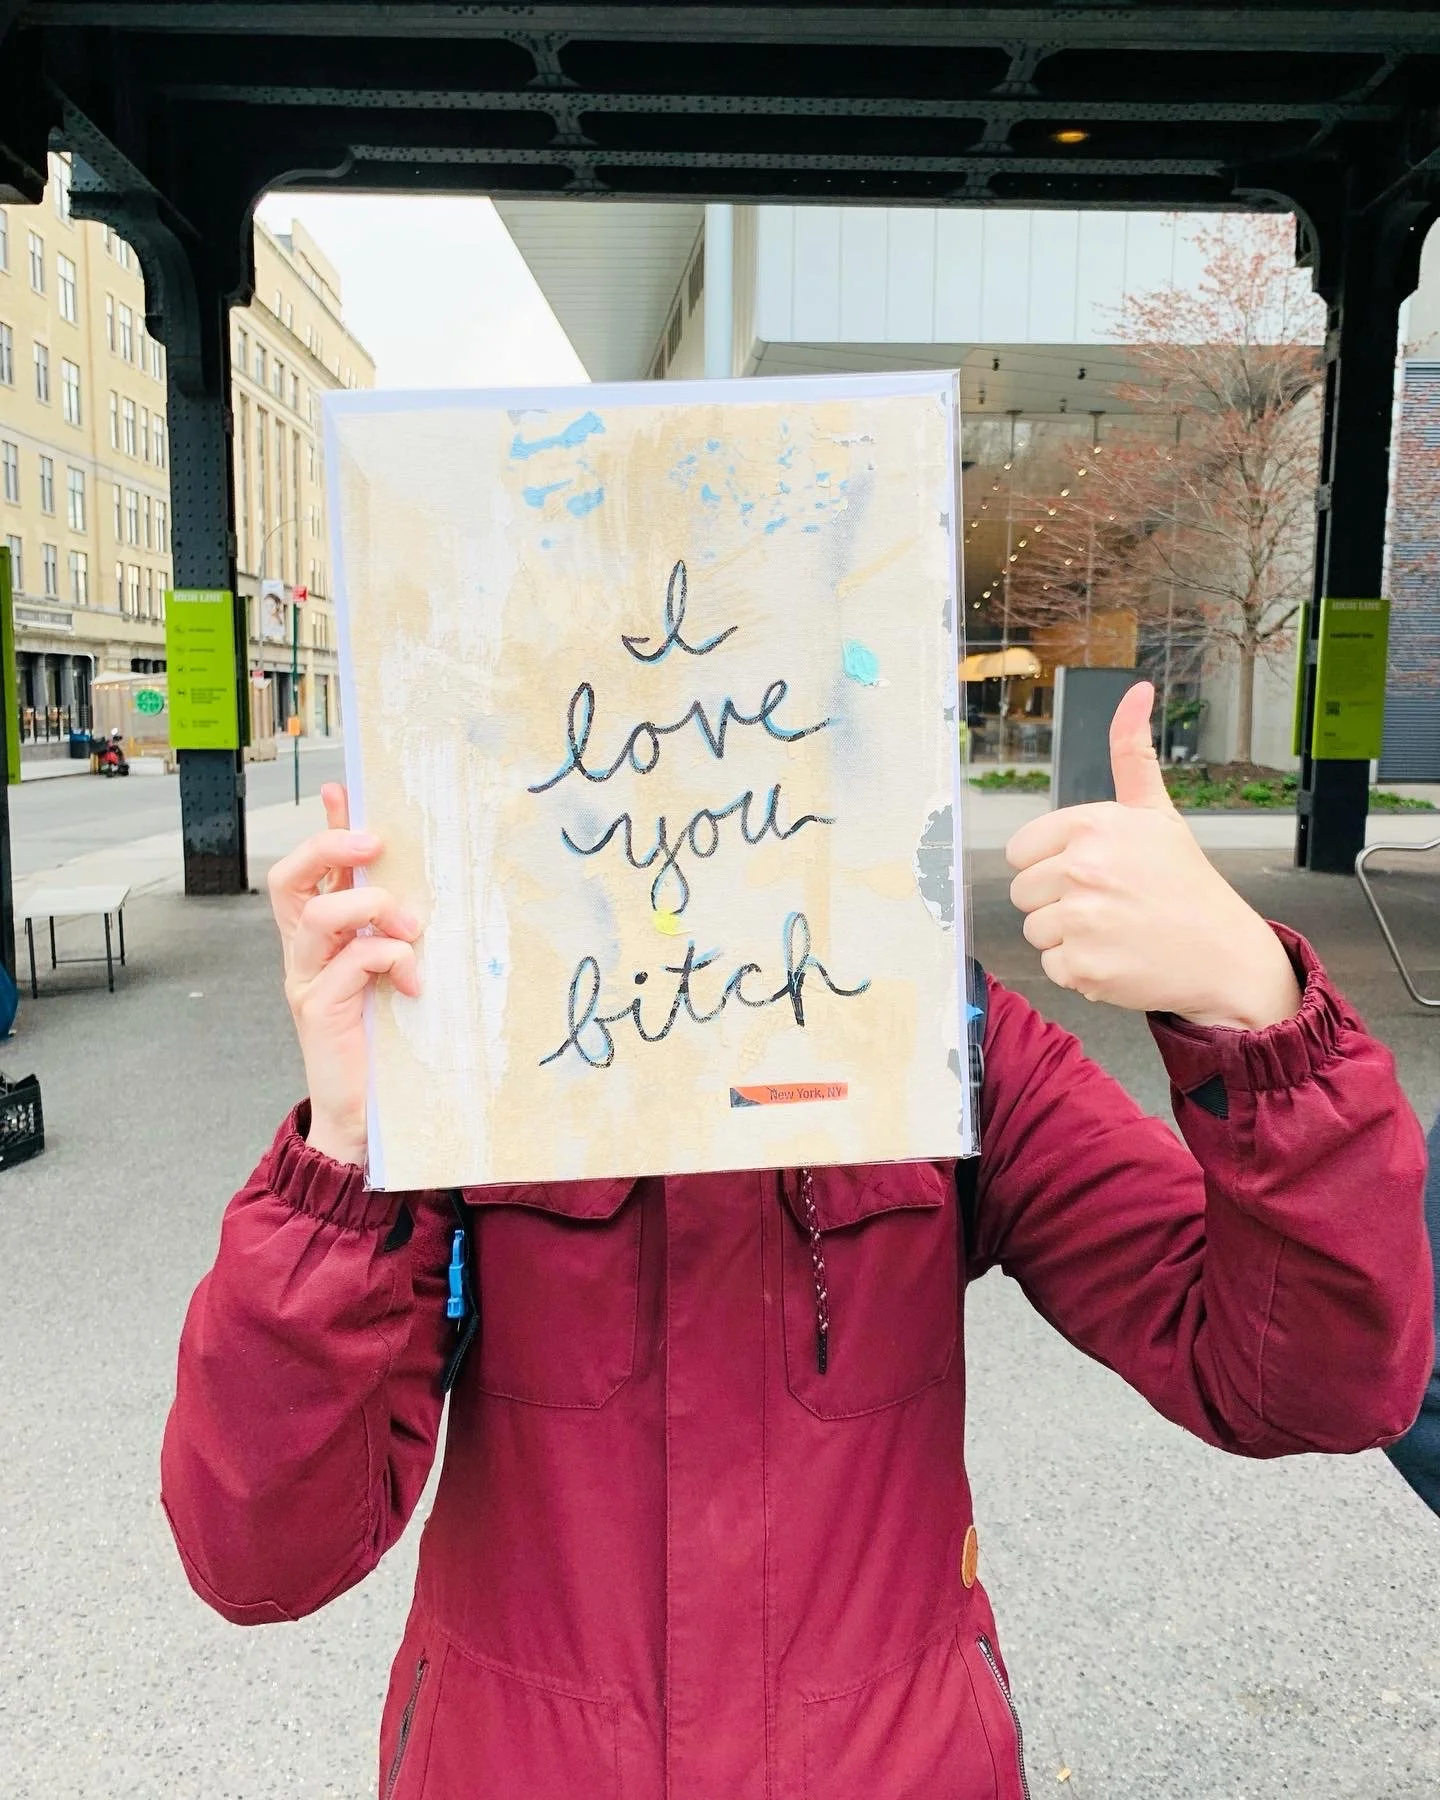 I
love
you
bitch
New York, NY
HIGH LINE
HIGH LINE